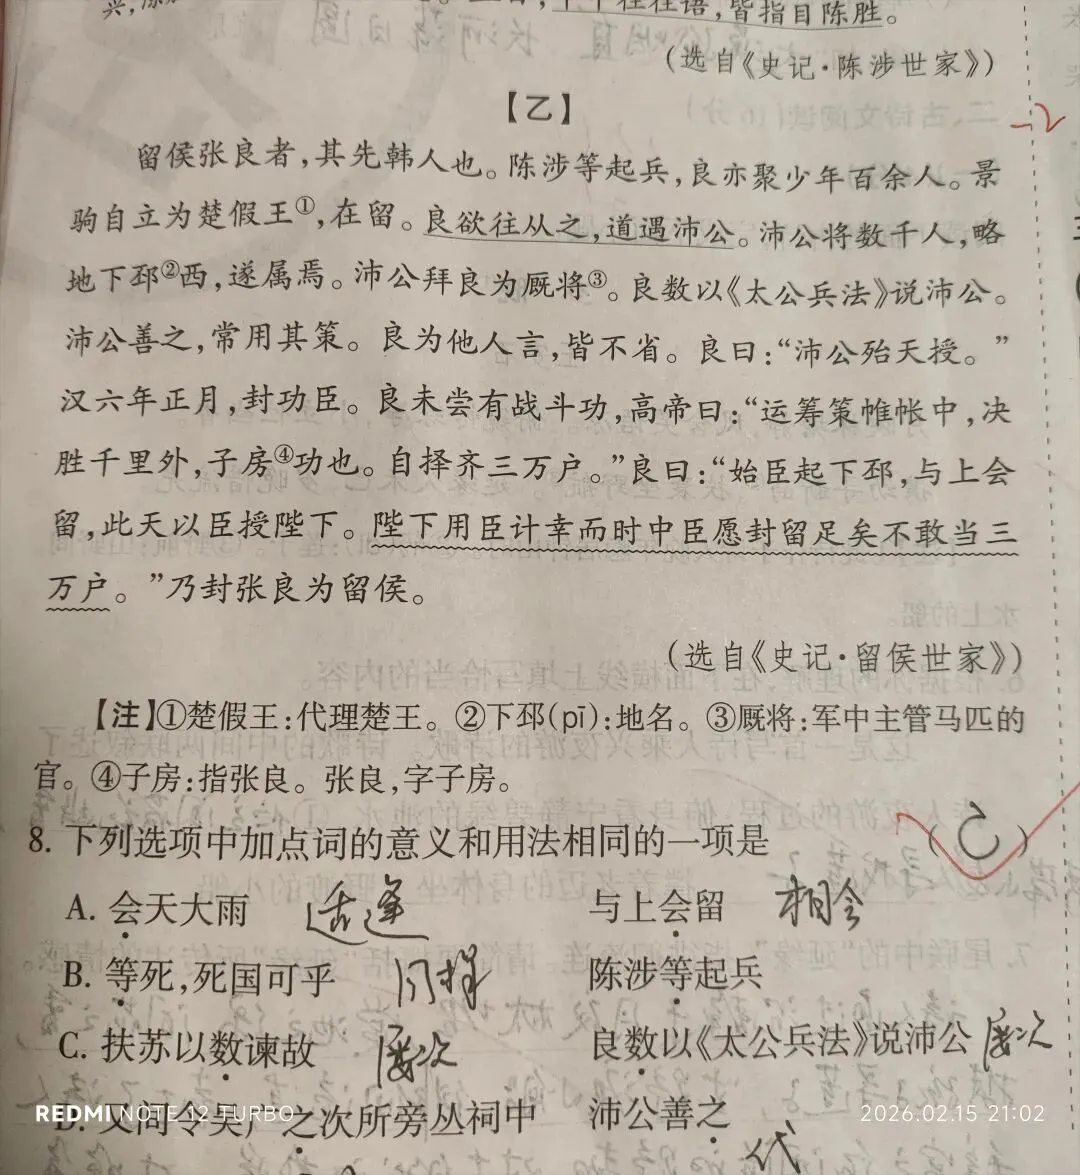 往往语，皆指目陈胜。
（选自《史记·陈涉世家》）
【乙】
留侯张良者，其先韩人也。陈涉等起兵，良亦聚少年百余人。景
驹自立为楚假王①，在留。良欲往从之，道遇沛公。沛公将数千人，略
地下邳②西，遂属焉。沛公拜良为厩将③。良数以《太公兵法》说沛公。
沛公善之，常用其策。良为他人言，皆不省。良曰：“沛公殆天授。”
汉六年正月，封功臣。良未尝有战斗功，高帝曰：“运筹策帷帐中，决
胜千里外，子房④功也。自择齐三万户。”良曰：“始臣起下邳，与上会
留，此天以臣授陛下。陛下用臣计幸而时中臣愿封留足矣不敢当三
万户。”乃封张良为留侯。
（选自《史记·留侯世家》）
【注】①楚假王：代理楚王。②下邳(pī)：地名。③厩将：军中主管马匹的
官。④子房：指张良。张良，字子房。
-2
8. 下列选项中加点词的意义和用法相同的一项是（C）
A. 会天大雨 适逢 与上会留 相会
B. 等死，死国可乎 同样 陈涉等起兵
C. 扶苏以数谏故 屡次 良数以《太公兵法》说沛公 屡次
D. 又间令吴广之次所旁丛祠中 沛公善之 代
REDMI NOTE 12 TURBO 2026.02.15 21:02